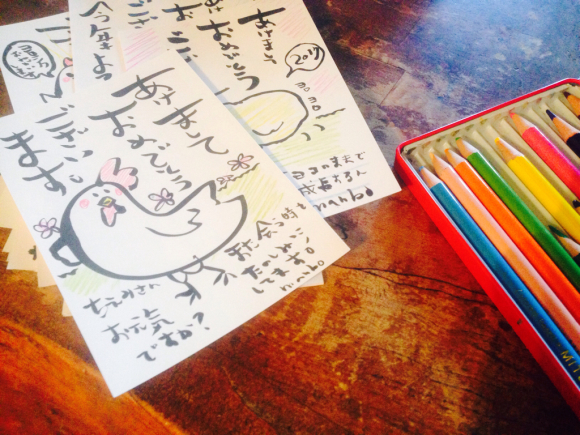 あけまして
おめでとう
ござい
ます。
ちえみさん
お元気
ですか?
また会う時を
たのしみに
してます。
manbo
あけまして
おめでとう
2017
成長するん
manbo
今年もよ
ござい